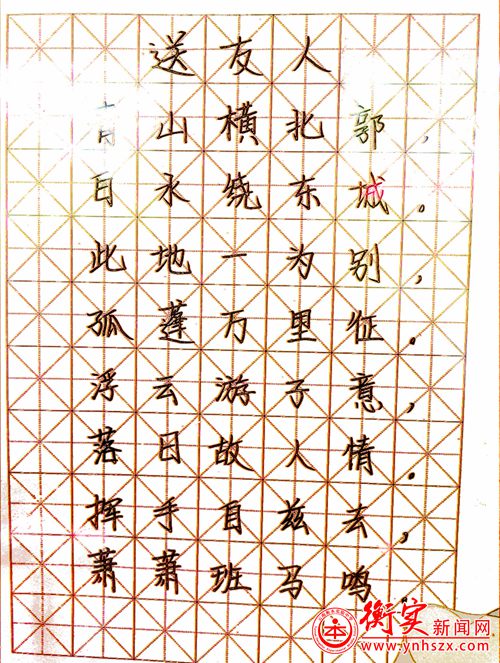 送友人
青山横北郭，
白水绕东城。
此地一为别，
孤蓬万里征。
浮云游子意，
落日故人情。
挥手自兹去，
萧萧班马鸣。
衡实新闻网
www.ynhszx.com